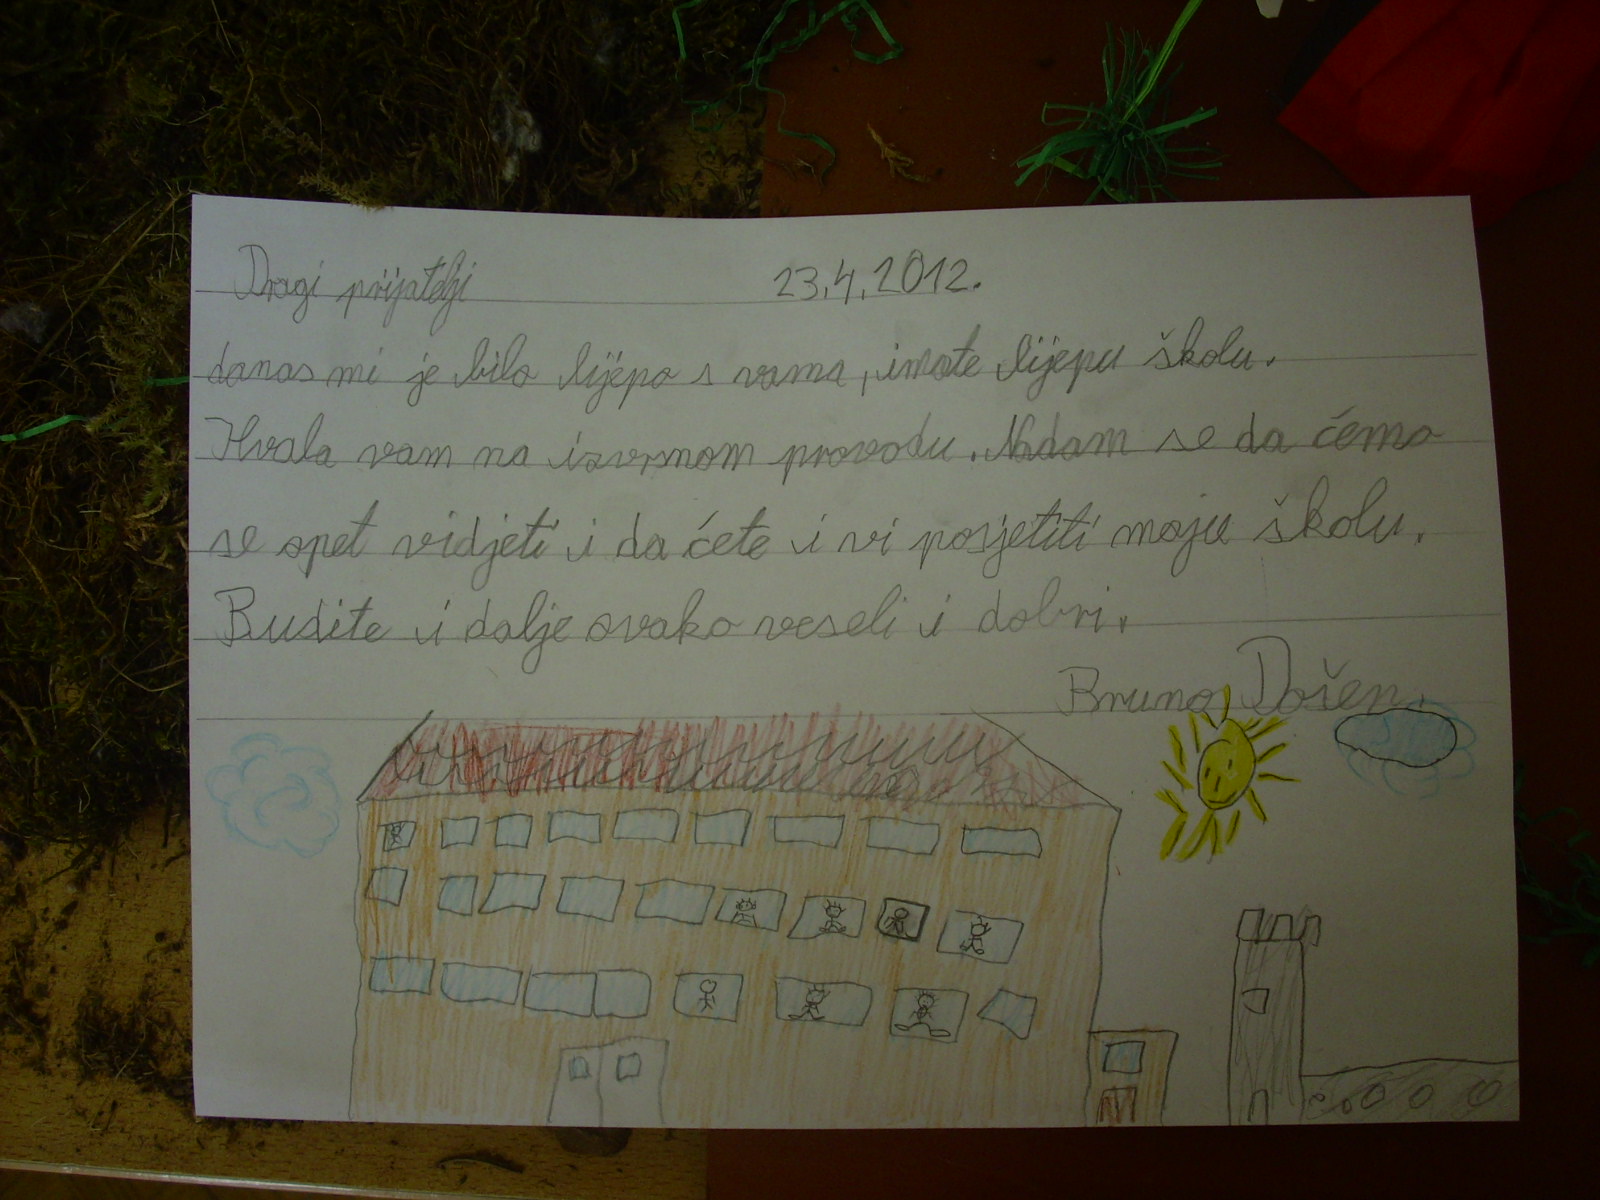 Dragi prijatelji 23.4.2012.
danas mi je bilo lijepo s vama, imate lijepu školu.
Hvala vam na izvrsnom provodu. Nadam se da ćemo
se opet vidjeti i da ćete i vi posjetiti moju školu.
Budite i dalje ovako veseli i dobri.
Bruno Došen.